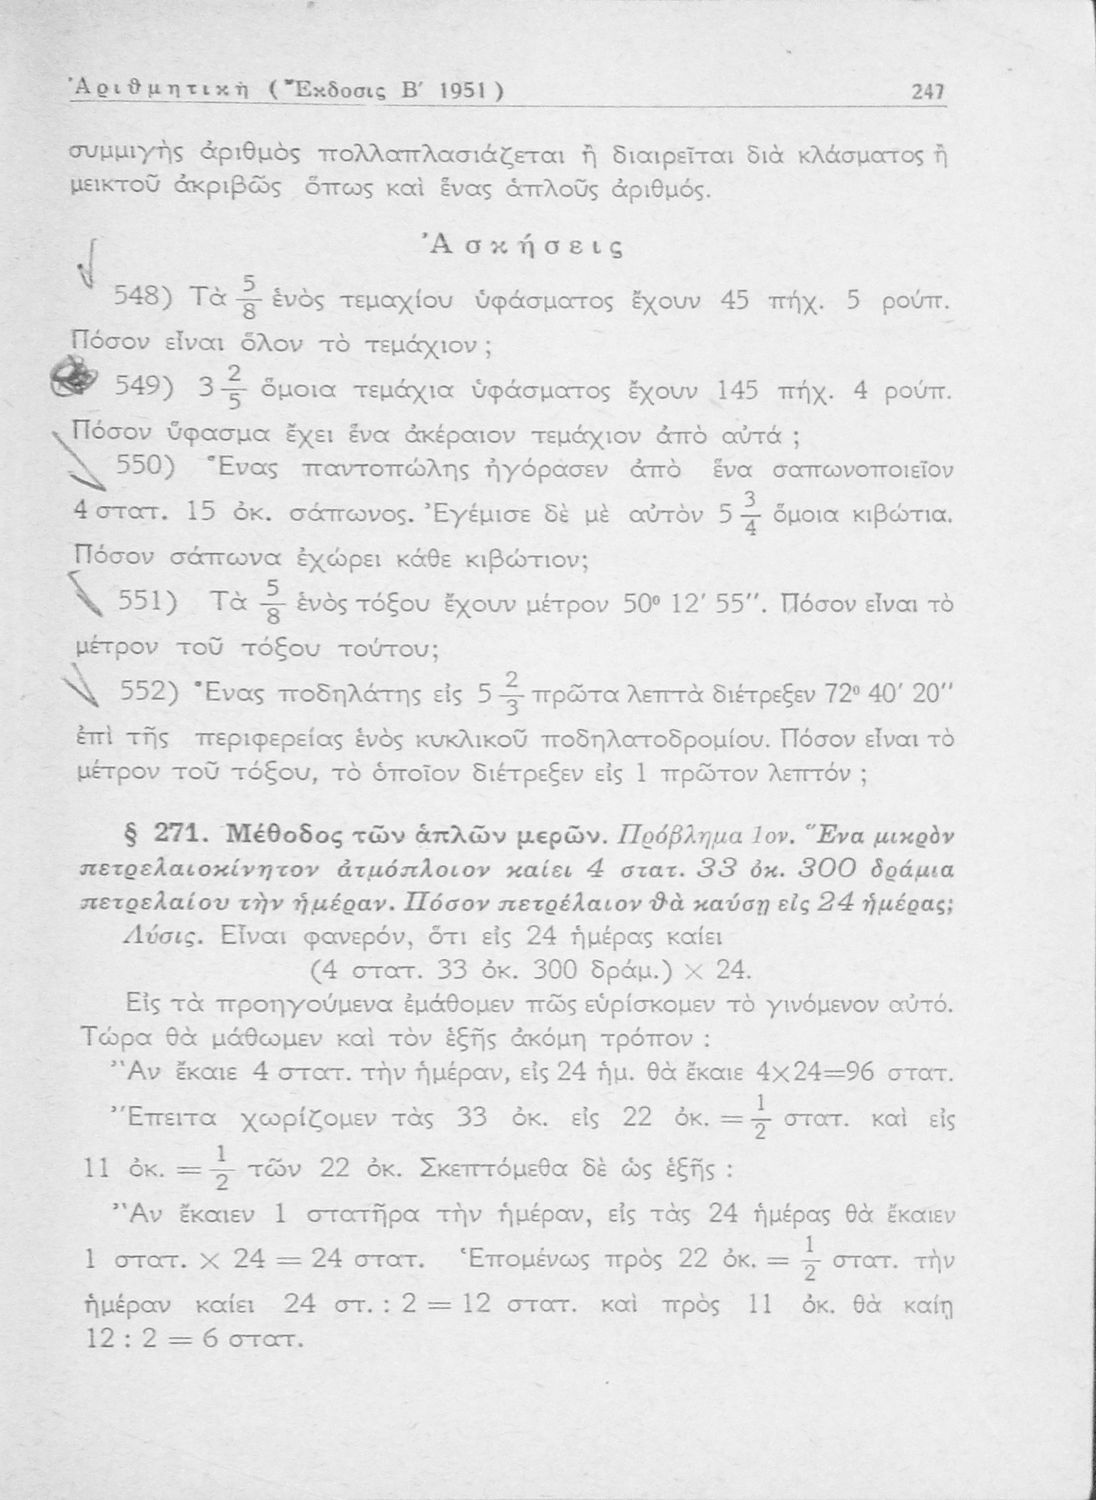 Ἀριθμητικὴ (Ἔκδοσις Β′ 1951) 247
συμμιγὴς ἀριθμὸς πολλαπλασιάζεται ἢ διαιρεῖται διὰ κλάσματος ἢ
μεικτοῦ ἀκριβῶς ὅπως καὶ ἕνας ἁπλοῦς ἀριθμός.
Ἀσκήσεις
548) Τὰ 5/8 ἑνὸς τεμαχίου ὑφάσματος ἔχουν 45 πήχ. 5 ρούπ.
Πόσον εἶναι ὅλον τὸ τεμάχιον ;
549) 3 2/5 ὅμοια τεμάχια ὑφάσματος ἔχουν 145 πήχ. 4 ρούπ.
Πόσον ὕφασμα ἔχει ἕνα ἀκέραιον τεμάχιον ἀπὸ αὐτά ;
550) Ἕνας παντοπώλης ἠγόρασεν ἀπὸ ἕνα σαπωνοποιεῖον
4 στατ. 15 ὀκ. σάπωνος. Ἐγέμισε δὲ μὲ αὐτὸν 5 3/4 ὅμοια κιβώτια.
Πόσον σάπωνα ἐχώρει κάθε κιβώτιον;
551) Τὰ 5/8 ἑνὸς τόξου ἔχουν μέτρον 50º 12′ 55″. Πόσον εἶναι τὸ
μέτρον τοῦ τόξου τούτου;
552) Ἕνας ποδηλάτης εἰς 5 2/3 πρῶτα λεπτὰ διέτρεξεν 72º 40′ 20″
ἐπὶ τῆς περιφερείας ἑνὸς κυκλικοῦ ποδηλατοδρομίου. Πόσον εἶναι τὸ
μέτρον τοῦ τόξου, τὸ ὁποῖον διέτρεξεν εἰς 1 πρῶτον λεπτόν ;
§ 271. Μέθοδος τῶν ἁπλῶν μερῶν. Πρόβλημα 1ον. Ἕνα μικρὸν
πετρελαιοκίνητον ἀτμόπλοιον καίει 4 στατ. 33 ὀκ. 300 δράμια
πετρελαίου τὴν ἡμέραν. Πόσον πετρέλαιον θὰ καύσῃ εἰς 24 ἡμέρας;
Λύσις. Εἶναι φανερόν, ὅτι εἰς 24 ἡμέρας καίει
(4 στατ. 33 ὀκ. 300 δράμ.) × 24.
Εἰς τὰ προηγούμενα ἐμάθομεν πῶς εὑρίσκομεν τὸ γινόμενον αὐτό.
Τώρα θὰ μάθωμεν καὶ τὸν ἑξῆς ἀκόμη τρόπον :
Ἂν ἔκαιε 4 στατ. τὴν ἡμέραν, εἰς 24 ἡμ. θὰ ἔκαιε 4×24=96 στατ.
Ἔπειτα χωρίζομεν τὰς 33 ὀκ. εἰς 22 ὀκ. = 1/2 στατ. καὶ εἰς
11 ὀκ. = 1/2 τῶν 22 ὀκ. Σκεπτόμεθα δὲ ὡς ἑξῆς :
Ἂν ἔκαιεν 1 στατῆρα τὴν ἡμέραν, εἰς τὰς 24 ἡμέρας θὰ ἔκαιεν
1 στατ. × 24 = 24 στατ. Ἑπομένως πρὸς 22 ὀκ. = 1/2 στατ. τὴν
ἡμέραν καίει 24 στ. : 2 = 12 στατ. καὶ πρὸς 11 ὀκ. θὰ καίῃ
12 : 2 = 6 στατ.